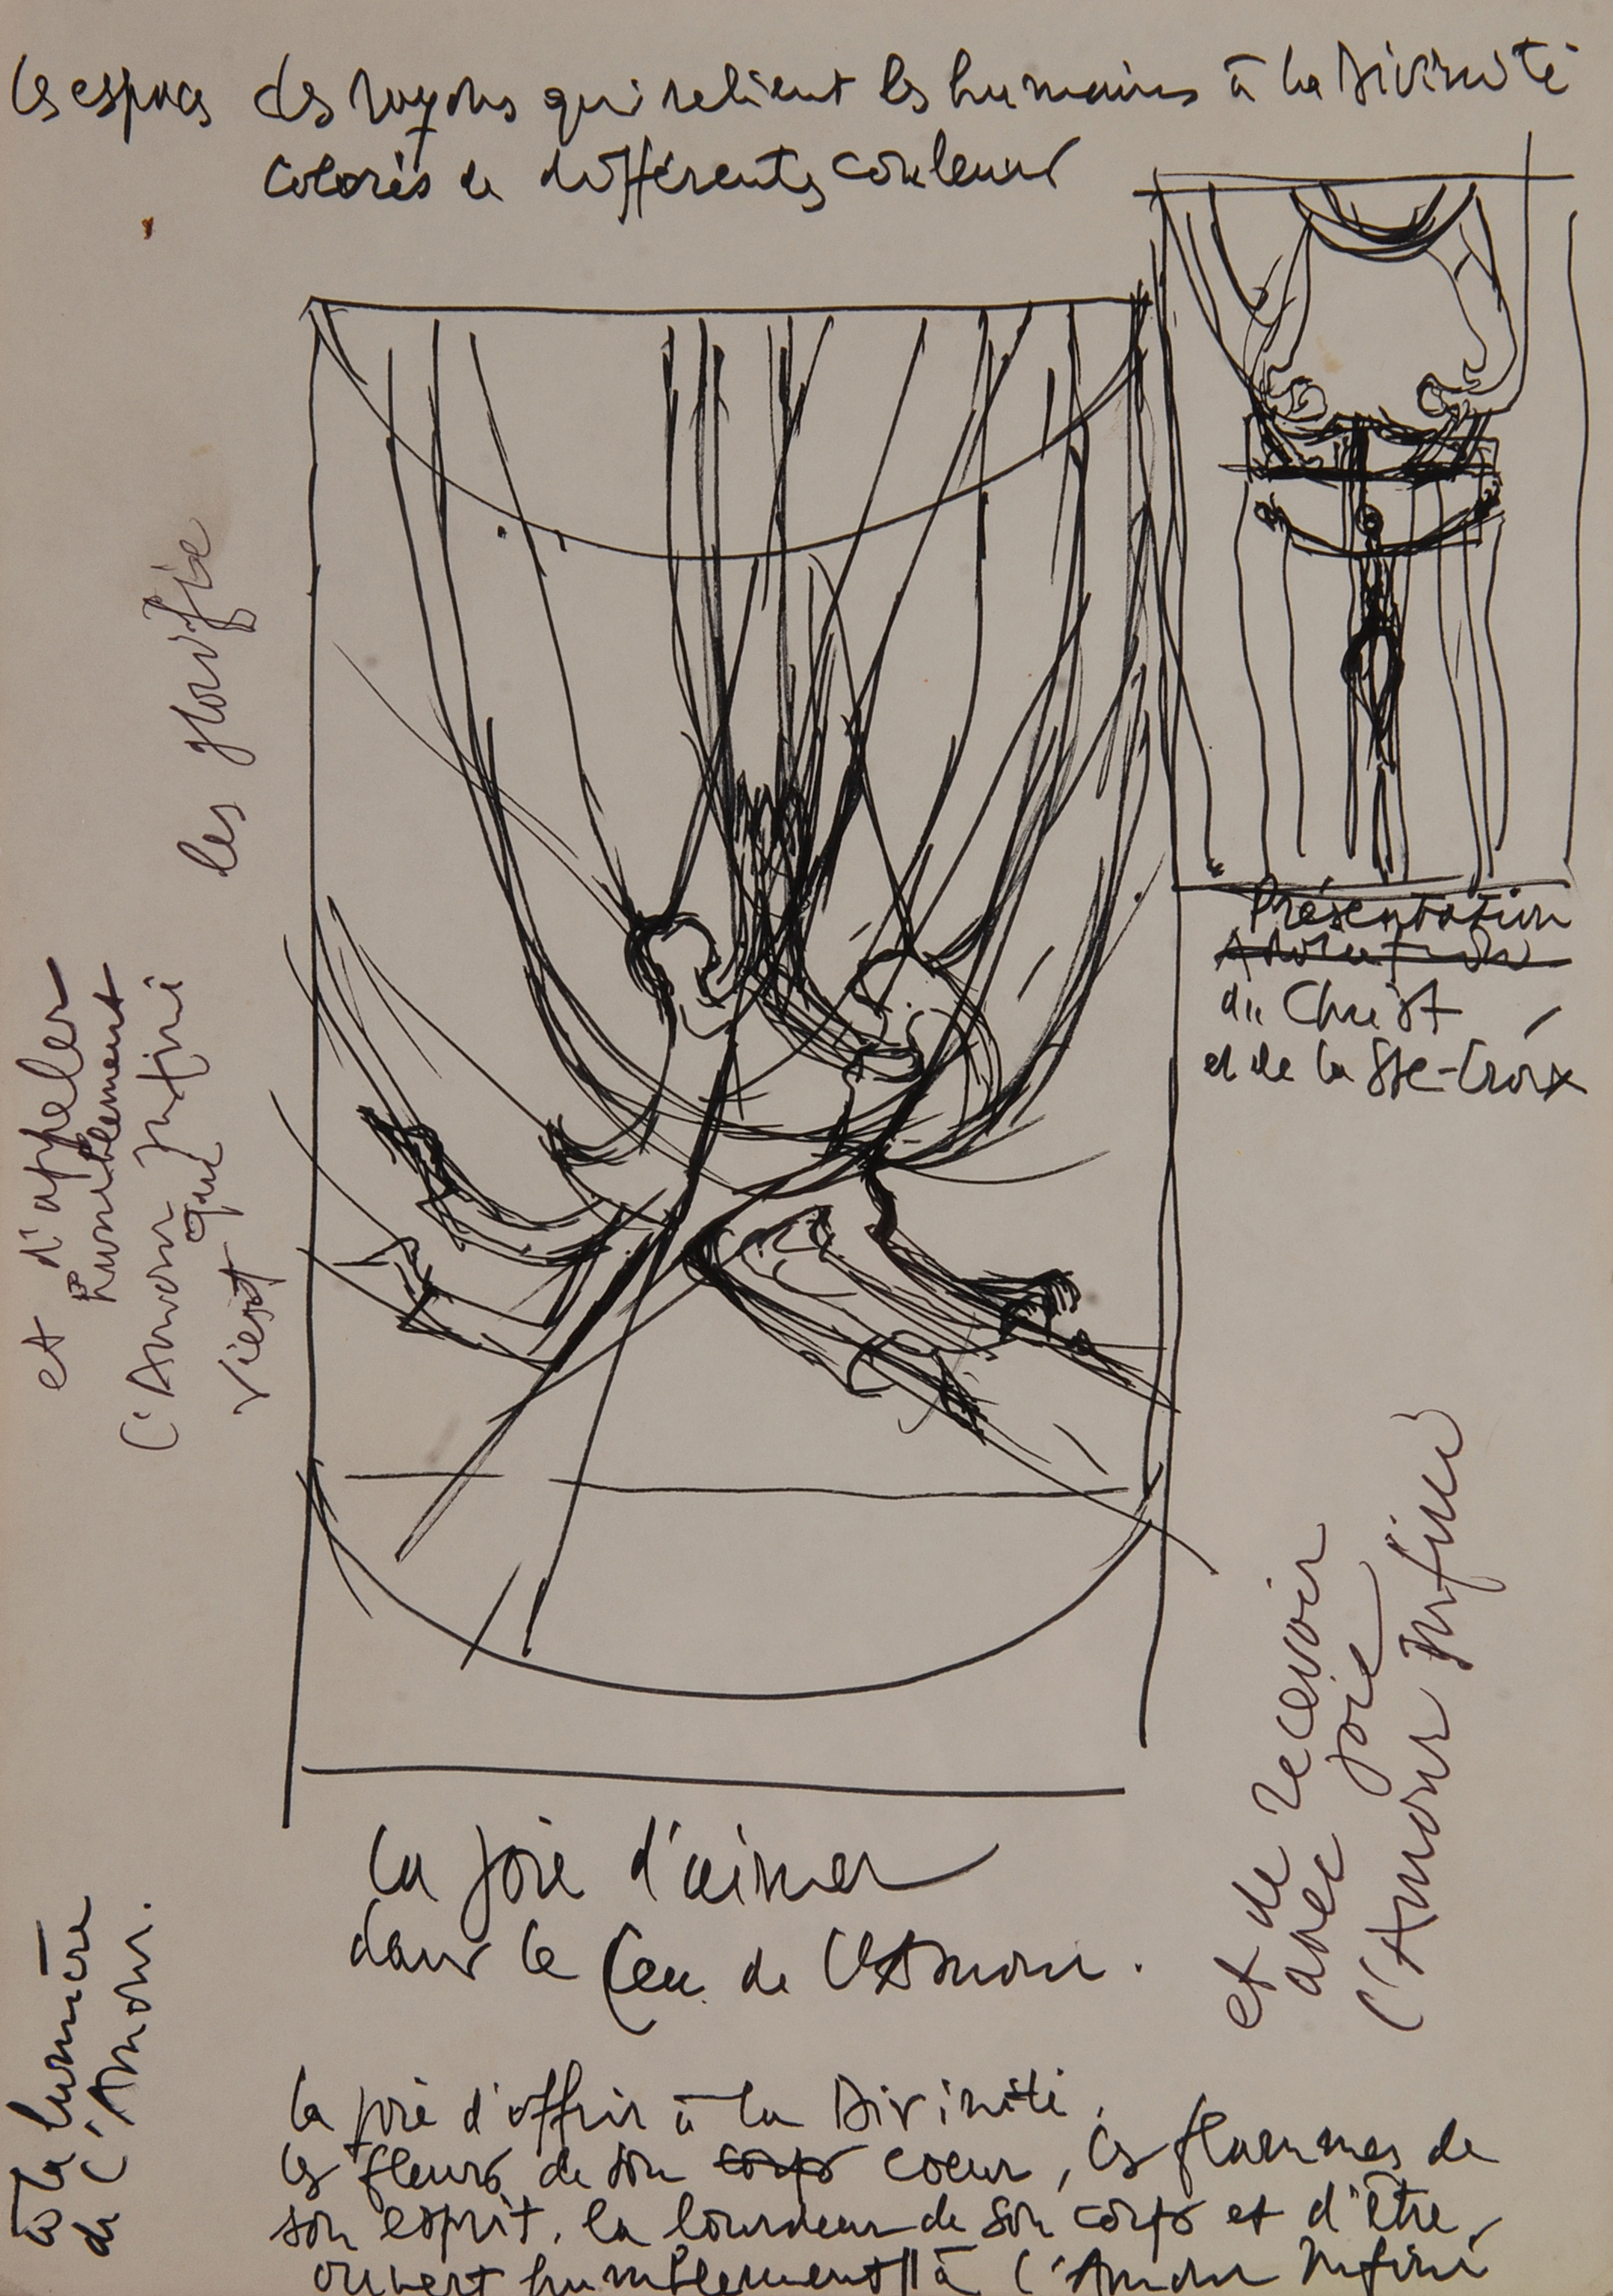 les espaces des rayons qui relient les humains à la Divinité
colorés de différentes couleurs
Présentation
du Christ
et de la Ste-Croix
les glorifie
et d'appeler
humblement
l'Amour Infini
que
vient
et de recevoir
avec joie
l'Amour Infini
la joie d'aimer
dans le feu de l'Amour.
à la lumière
de l'Amour.
la joie d'offrir à la Divinité,
les fleurs de son corps coeur, les flammes de
son esprit, la lourdeur de son corps et d'être
ouvert humblement à l'Amour Infini